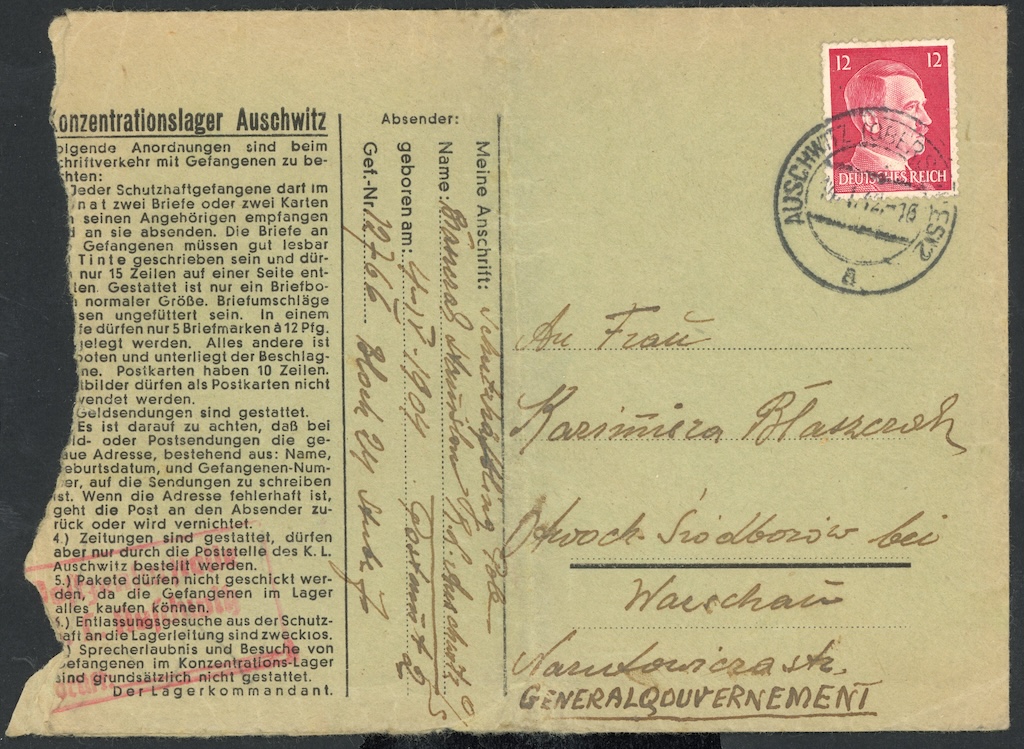 Konzentrationslager Auschwitz
olgende Anordnungen sind beim
chriftverkehr mit Gefangenen zu be-
hten:
Jeder Schutzhaftgefangene darf im
nat zwei Briefe oder zwei Karten
seinen Angehörigen empfangen
d an sie absenden. Die Briefe an
Gefangenen müssen gut lesbar
Tinte geschrieben sein und dür-
nur 15 Zeilen auf einer Seite ent-
ten. Gestattet ist nur ein Briefbo-
normaler Größe. Briefumschläge
sen ungefüttert sein. In einem
fe dürfen nur 5 Briefmarken à 12 Pfg.
gelegt werden. Alles andere ist
boten und unterliegt der Beschlag-
me. Postkarten haben 10 Zeilen.
tbilder dürfen als Postkarten nicht
wendet werden.
Geldsendungen sind gestattet.
Es ist darauf zu achten, daß bei
ld- oder Postsendungen die ge-
aue Adresse, bestehend aus: Name,
eburtsdatum, und Gefangenen-Num-
er, auf die Sendungen zu schreiben
st. Wenn die Adresse fehlerhaft ist,
geht die Post an den Absender zu-
rück oder wird vernichtet.
4.) Zeitungen sind gestattet, dürfen
aber nur durch die Poststelle des K. L.
Auschwitz bestellt werden.
5.) Pakete dürfen nicht geschickt wer-
den, da die Gefangenen im Lager
alles kaufen können.
6.) Entlassungsgesuche aus der Schutz-
haft an die Lagerleitung sind zwecklos.
) Sprecherlaubnis und Besuche von
Gefangenen im Konzentrations-Lager
sind grundsätzlich nicht gestattet.
Der Lagerkommandant.
Absender:
Meine Anschrift: Schutzhäftling Pole
Name:
geboren am: 1904
Gef.-Nr. 12766 Block 24 Stube 7
12 12
DEUTSCHES REICH
AUSCHWITZ (OBERSCHLES) 2
a
An Frau
Kazimiera Blaszczak
Otwock-Siodborów bei
Warschau
Narutowicza str.
GENERALGOUVERNEMENT